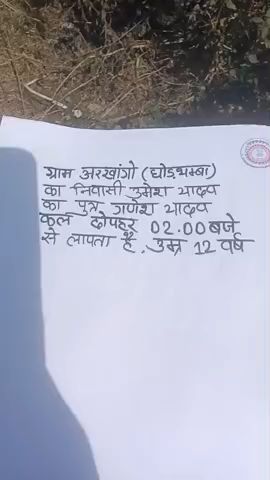 ग्राम अरखांगो (घोड़थम्बा)
का निवासी उमेश यादव
का पुत्र गणेश यादव
कल दोपहर 02.00 बजे
से लापता है, उम्र 12 वर्ष